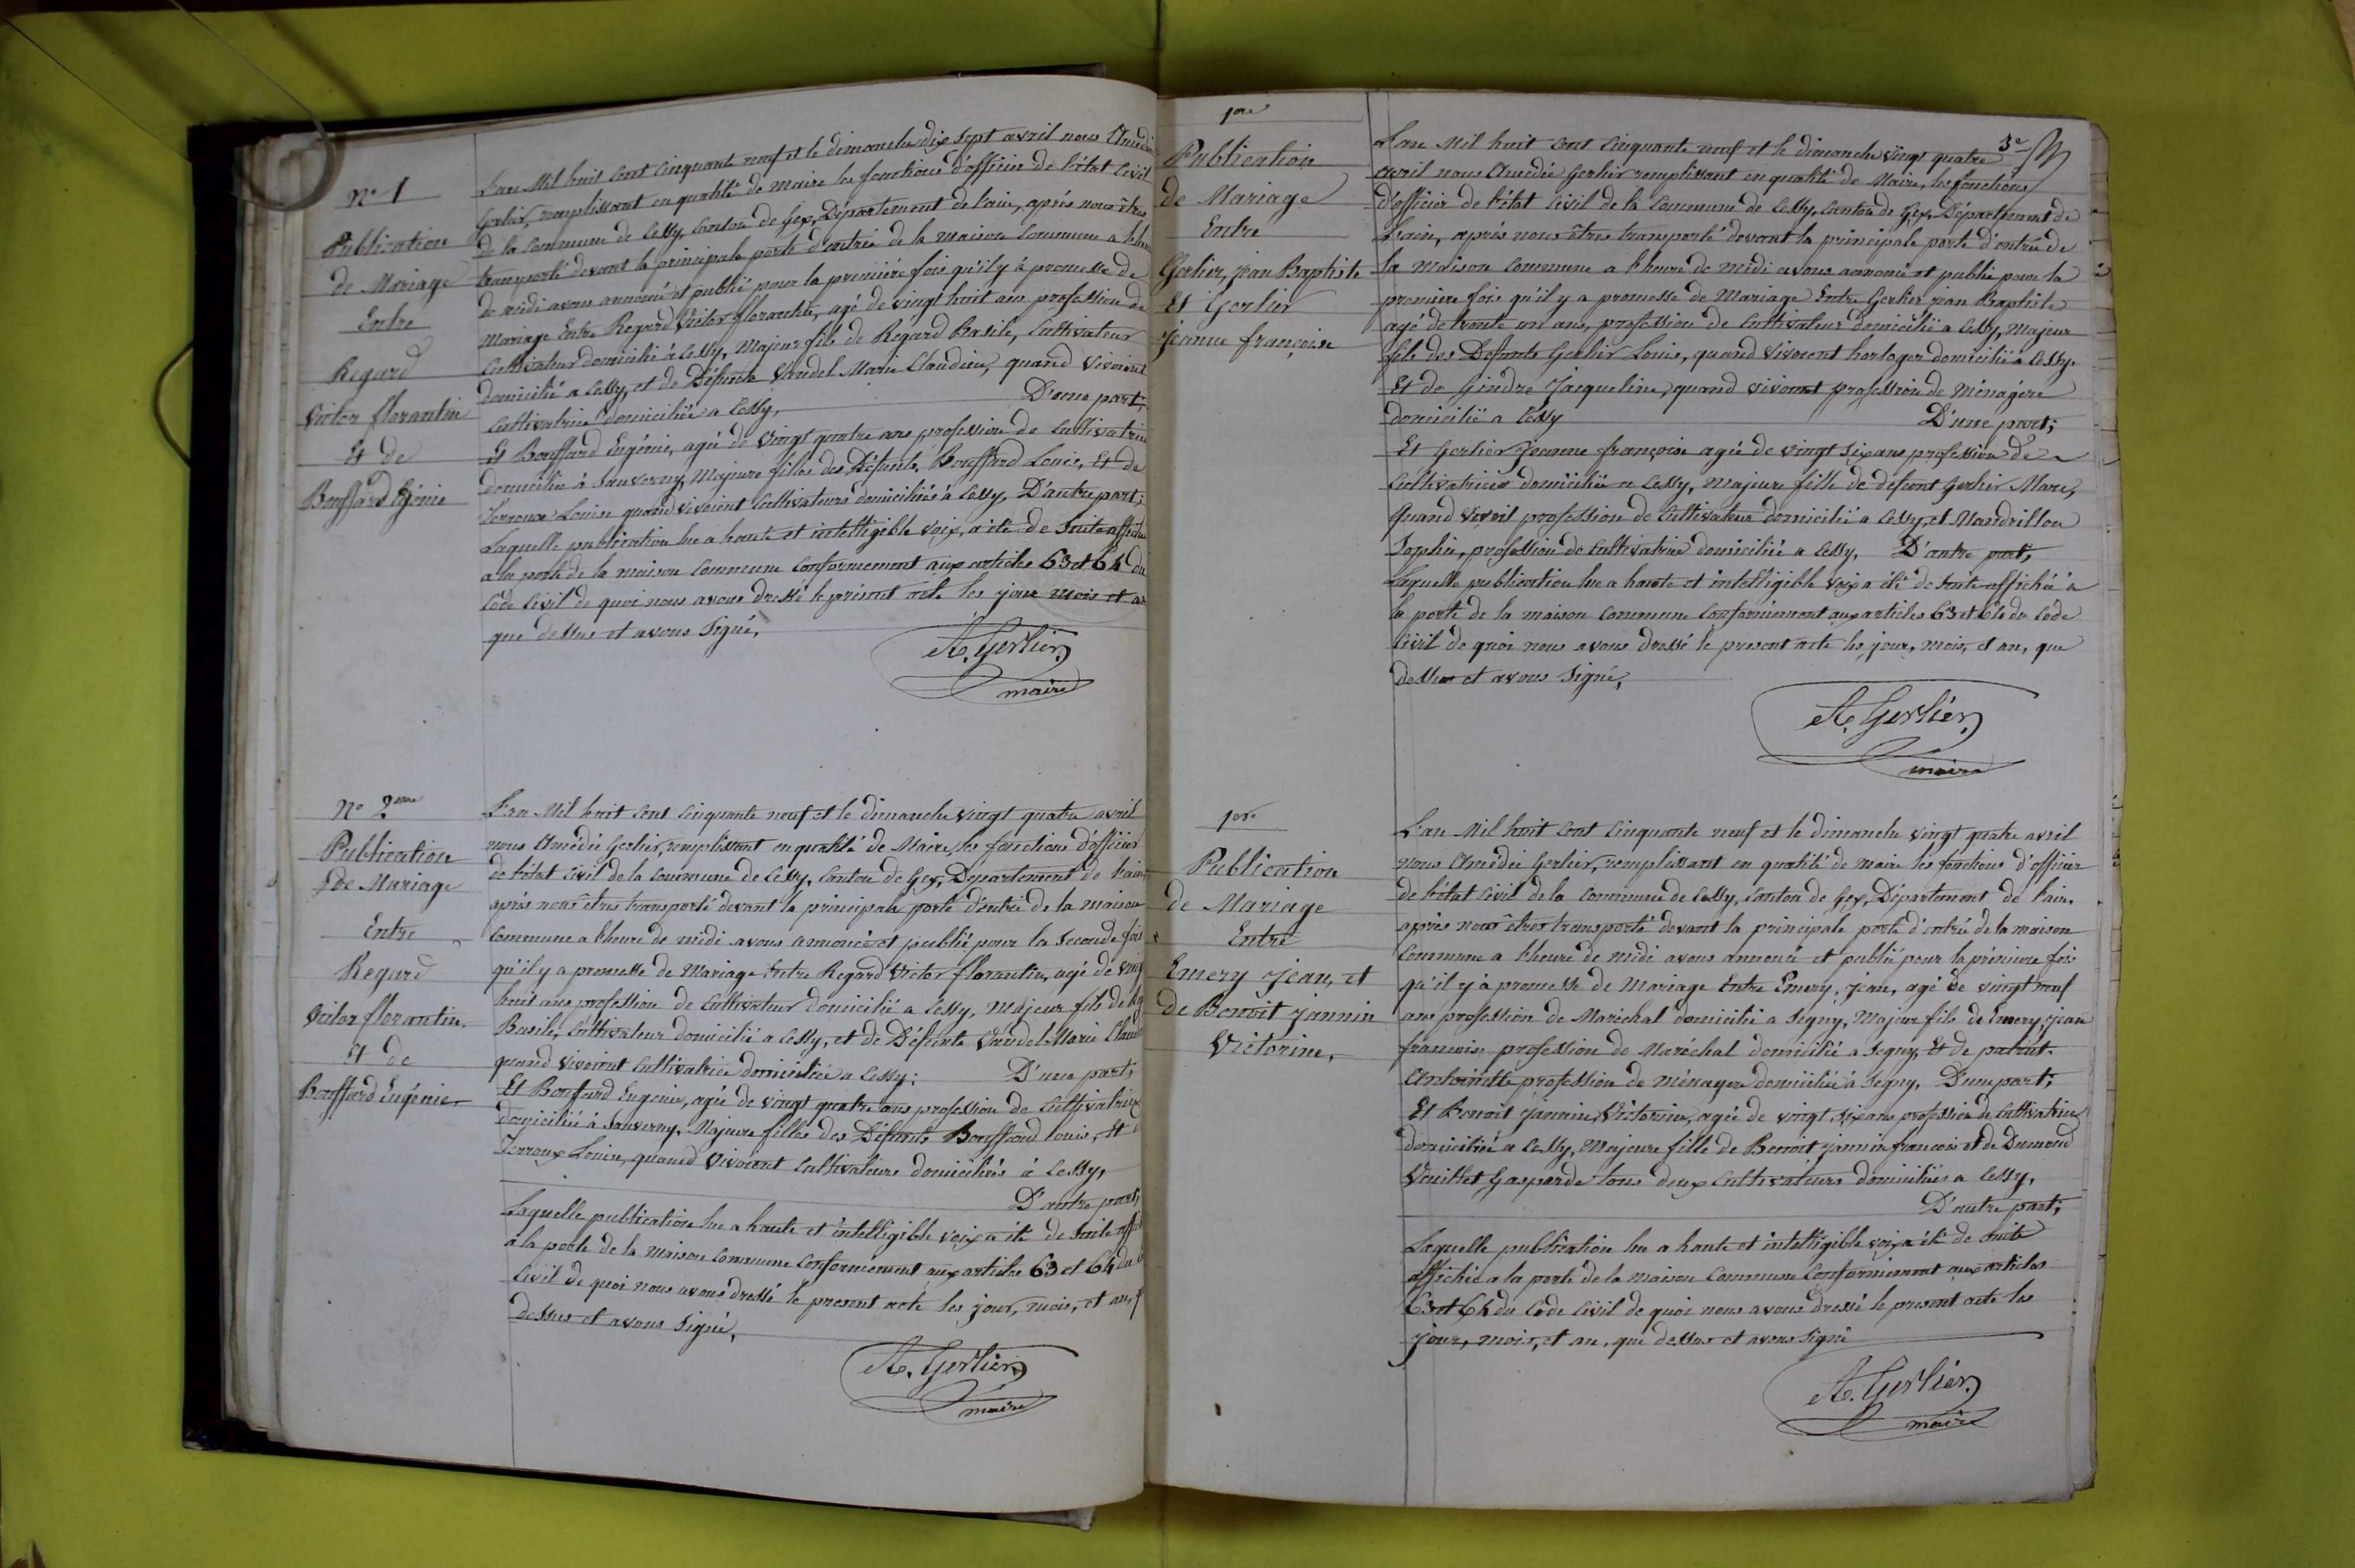 N° 1
Publication
de Mariage
Entre
Regard
Victor florantin
Et de
Bouffard Egénie
L'an Mil huit Cent Cinquante neuf et le dimanche dix Sept avril nous Amédé
Gerlier, remplissant en qualité de Maire les fonctions d'officier de l'état Civil
de la Commune de Cessy, Canton de Gex, Département de l'ain, après nous êtres
transporté devant la principale porte d'entrée de la Maison Commune a l'heure
de midi avons annoncé et publié pour la première fois qu'il y à promesse de
Mariage Entre Regard Victor florantin, agé de vingt huit ans profession de
Cultivateur domicilié à Cessy, Majeur fils de Regard Basile, Cultivateur
domicilié a Cessy, et de Défunte Vandel Marie Claudine, quand vivoient
Cultivatrice domiciliée a Cessy, D'une part;
Et Bouffard Eugénie, agée de vingt quatre ans profession de Cultivatrice
domiciliée à Sauverny, Majeure filles des Défunts, Bouffard Louis, Et de
Terroux Louise quand vivoient Cultivateurs domiciliés à Cessy, D'autre part;
Laquelle publication lue a haute et intelligible voix, a été de Suite affichée
a la porte de la maison Commune Conformement aux articles 63 et 64 du
Code Civil de quoi nous avons dressé le présent acte les jour mois et an
que dessus et avons Signé,
A. Gerlier
maire
N° 2me
Publication
de Mariage
Entre
Regard
Victor florantin.
Et de
Bouffard Eugénie
L'an Mil huit Cent Cinquante neuf et le dimanche vingt quatre avril
nous Amédée Gerlier, remplissant en qualité de Maire, les fonctions d'officier
de l'état Civil de la Commune de Cessy, Canton de Gex, Département de l'ain
après nous êtres transporté devant la principale porte d'entrée de la maison
Commune a l'heure de midi avons annoncé et publié pour la Seconde fois
qu'il y a promesse de Mariage Entre Regard Victor florantin, agé de vingt
huit ans profession de Cultivateur domicilié a Cessy, Majeur fils de Reg
Basile, Cultivateur domicilié a Cessy, et de Défunte Vandel Marie Claud
quand vivoient Cultivatrice domiciliée a Cessy; D'une part;
Et Bouffard Eugénie, agée de vingt quatre ans profession de Cultivatrice
domiciliée à Sauverny, Majeure filles des Défunts Bouffard louis, Et d
Terroux Louise, quand Vivoient Cultivateurs domiciliés à Cessy,
D'autre part,
Laquelle publication lue a haute et intelligible voix a été de Suite affi
a la porte de la Maison Commune Conformement aux articles 63 et 64 du C
Civil de quoi nous avons dressé le present acte les jour, mois, et an, q
dessus et avons Signé,
A. Gerlier
maire
1ere
Publication
de Mariage
Entre
Gerlier, jean Baptiste
Et Gerlier
Jeanne françoise
3e
L'an Mil huit Cent Cinquante neuf et le dimanche vingt quatre
avril nous Amédée Gerlier remplissant en qualité de Maire, les fonctions
d'officier de l'état Civil de la Commune de Cessy, Canton de Gex, Département de
L'ain, après nous êtres transporté devant la principale porte d'entrée de
la Maison Commune a l'heure de midi avons annoncé et publié pour la
première fois qu'il y a promesse de Mariage Entre Gerlier jean Baptiste
agé de trente un ans, profession de Cultivateur domicilié a Cessy, Majeur
fils des Défunts Gerlier Louis, quand vivoient horloger domicilié à Cessy.
Et de Gindre Jacqueline, quand vivoient profession de Ménagère
domicilié a Cessy D'une part;
Et Gerlier Jeanne françoise agée de vingt Six ans profession de
Cultivatrice domiciliée a Cessy, Majeure fille de défunt Gerlier Marc,
Quand vivoit profession de Cultivateur domicilié a Cessy, et Mandrillon
Sophie, profession de Cultivatrice domiciliée a Cessy, D'autre part;
Laquelle publication lue a haute et intelligible voix a été de Suite affichée à
la porte de la maison Commune Conformément aux articles 63 et 64 du Code
Civil de quoi nous avons dressé le present acte les, jour, mois, et an, que
dessus et avons Signé,
A. Gerlier
maire
1ere
Publication
de Mariage
Entre
Emery Jean, et
de Benoit jannin
Victorine,
L'an Mil huit Cent Cinquante neuf et le dimanche vingt quatre avril
nous Amédée Gerlier, remplissant en qualité de maire les fonctions d'officier
de l'état Civil de la Commune de Cessy, Canton de Gex, Département de l'ain,
après nous êtres transporté devant la principale porte d'entrée de la maison
Commune a l'heure de midi avons annoncé et publié pour la première fois
qu'il y à promesse de Mariage Entre Emery, jean, agé de vingt neuf
ans profession de Maréchal domicilié a Segny, Majeur fils de Emery, jean
francois, profession de Maréchal domicilié a Segny, Et de patrut.
Antoinette profession de ménagère domiciliée à Segny, D'une part;
Et Benoit Jannin, Victorine, agée de vingt six ans profession de Cultivatrice
domiciliée a Cessy, Majeure fille de Benoit jannin francois et de Dumond
Vuillet Gasparde tous deux Cultivateurs domiciliés a Cessy,
D'autre part;
Laquelle publication lue a haute et intelligible voix a été de Suite
affichée a la porte de la maison Commune Conformément aux articles
63 et 64 du Code Civil de quoi nous avons dressé le present acte les
jour, mois, et an, que dessus et avons Signé
A. Gerlier
maire